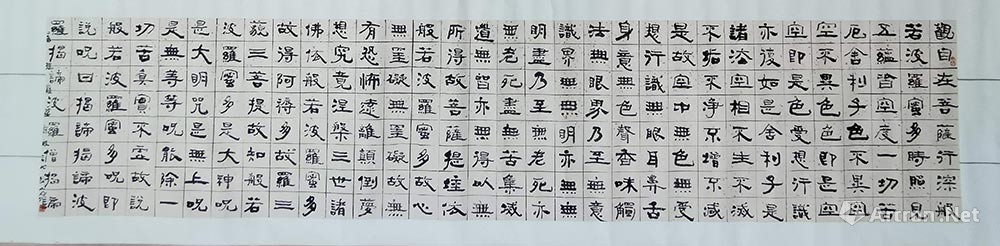 觀自在菩薩行深般
若波羅蜜多時照見
五蘊皆空度一切苦
厄舍利子色不異空
空不異色色即是空
空即是色受想行識
亦復如是舍利子是
諸法空相不生不滅
不垢不淨不增不減
是故空中無色無受
想行識無眼耳鼻舌
身意無色聲香味觸
法無眼界乃至無意
識界無無明亦無無
明盡乃至無老死亦
無老死盡無苦集滅
道無智亦無得以無
所得故菩提薩埵依
般若波羅蜜多故心
無罣礙無罣礙故無
有恐怖遠離顛倒夢
想究竟涅槃三世諸
佛依般若波羅蜜多
故得阿耨多羅三
藐三菩提故知般若
波羅蜜多是大神咒
是大明咒是無上咒
是無等等咒能除一
切苦真實不虛故說
般若波羅蜜多咒即
說咒曰揭諦揭諦波
羅揭諦波羅僧揭諦
Artron.Net